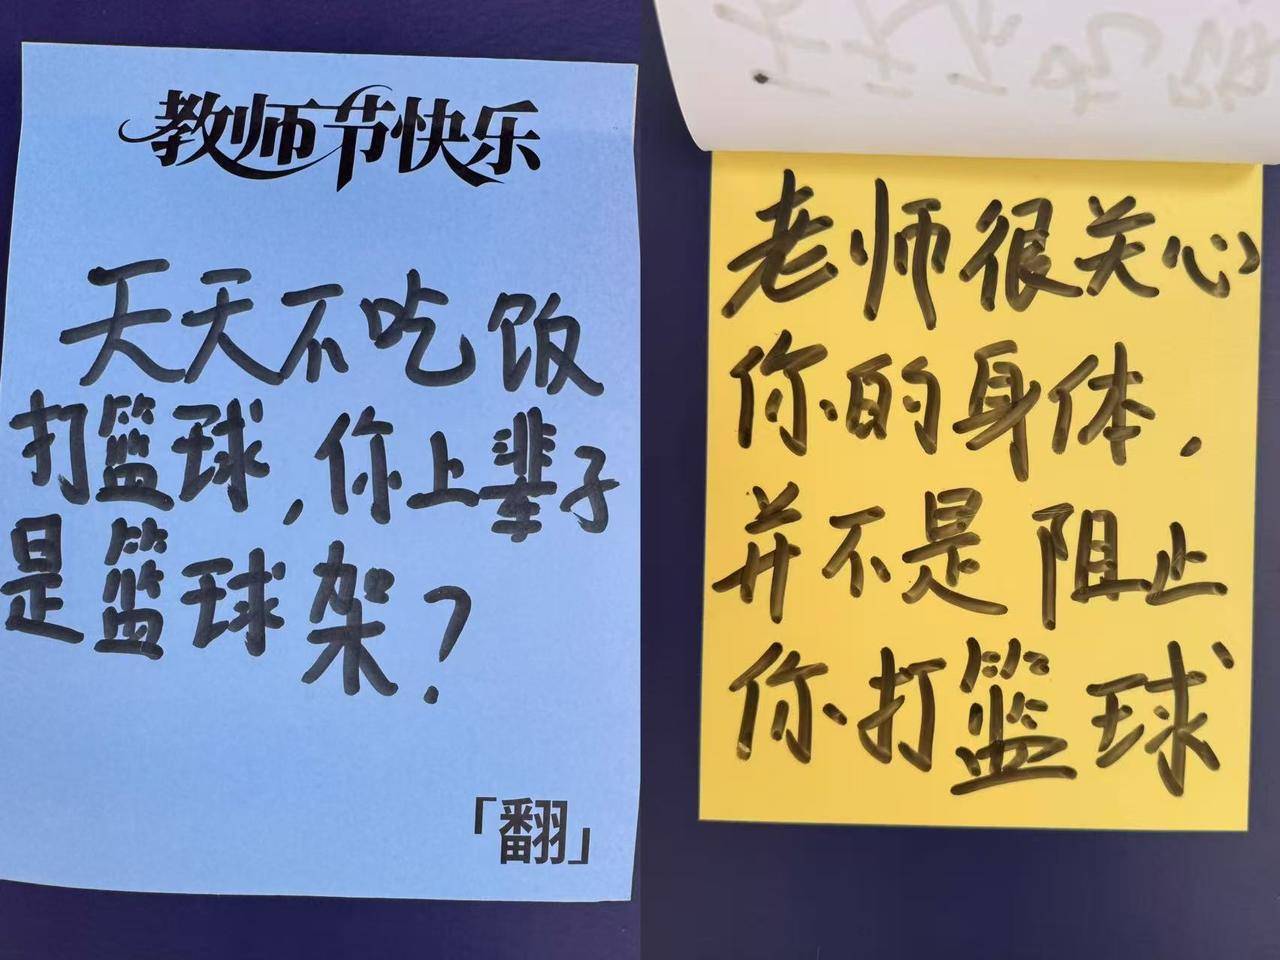 教师节快乐
天天不吃饭
打篮球,你上辈子
是篮球架?
「翻」
老师很关心
你的身体,
并不是阻止
你打篮球